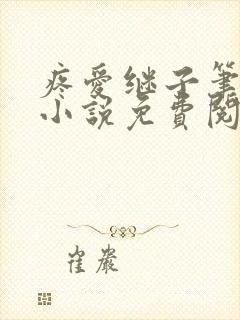 疼爱继子笔
小说免费阅
崔岩